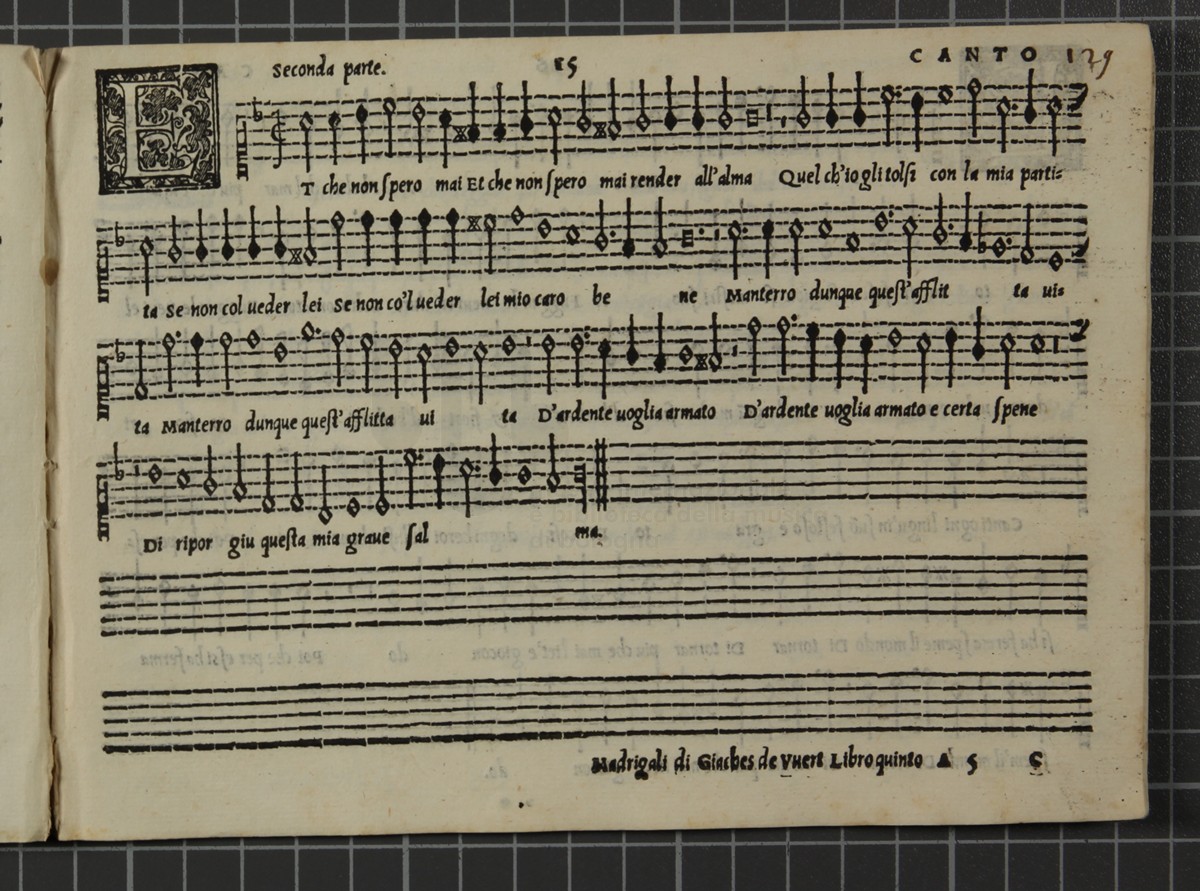 Seconda parte. 15 CANTO 1 29
ET che non ſpero mai Et che non ſpero mai render all'alma Quel ch'io gli tolſi con la mia parti=
ta Se non col ueder lei Se non co'l ueder lei mio caro be ne Manterro dunque queſt'afflit ta ui=
ta Manterro dunque queſt'afflitta ui ta D'ardente uoglia armato D'ardente uoglia armato e certa ſpene
Di ripor giu queſta mia graue ſal ma.
Madrigali di Giaches de Vuert Libro quinto A 5 C